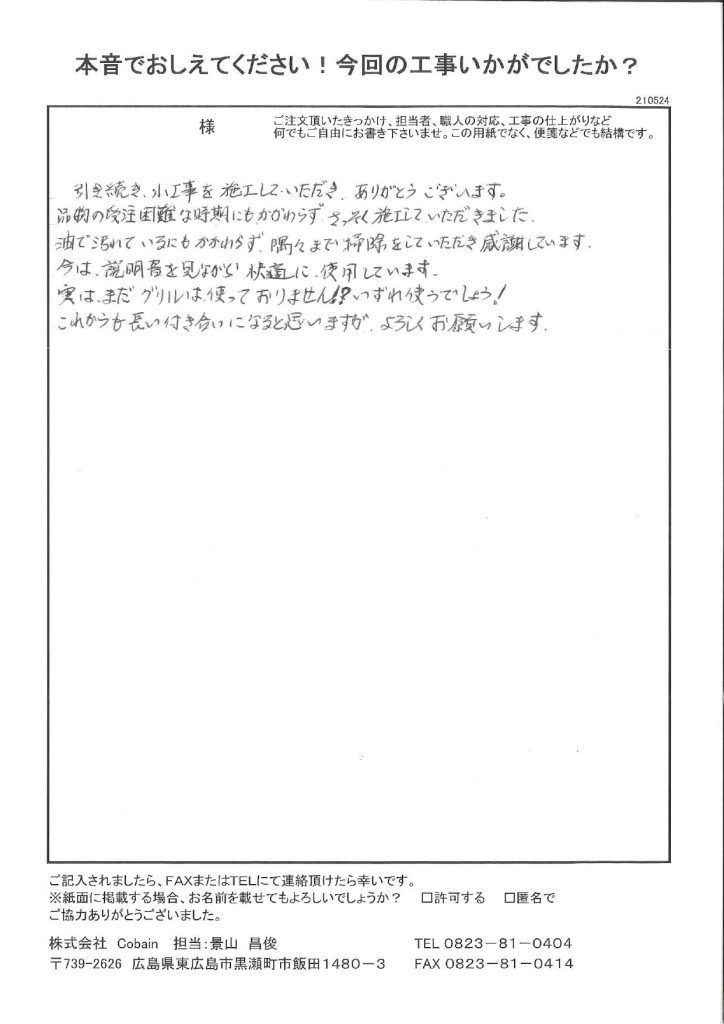 本音でおしえてください！今回の工事いかがでしたか？
210524
様
ご注文頂いたきっかけ、担当者、職人の対応、工事の仕上がりなど
何でもご自由にお書き下さいませ。この用紙でなく、便箋などでも結構です。
引き続き、小工事を施工していただき、ありがとうございます。
品物の受注困難な時期にもかかわらず、さっそく施工していただきました。
油で汚れているにもかかわらず、隅々まで掃除をしていただき感謝しています。
今は、説明書を見ながら快適に、使用しています。
実は、まだグリルは、使っておりません!?いずれ使うでしょう！
これからも長い付き合いになると思いますが、よろしくお願いします。
ご記入されましたら、FAXまたはTELにて連絡頂けたら幸いです。
※紙面に掲載する場合、お名前を載せてもよろしいでしょうか？ □許可する □匿名で
ご協力ありがとうございました。
株式会社 Cobain 担当：景山 昌俊 TEL 0823－81－0404
〒739-2626 広島県東広島市黒瀬町市飯田1480－3 FAX 0823－81－0414